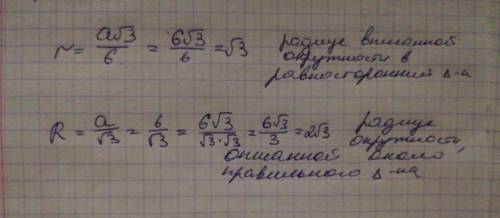 r = a√3/6 = 6√3/6 = √3 радиус вписанной
окружности в
равносторонний Δ-к
R = a/√3 = 6/√3 = 6√3/(√3·√3) = 6√3/3 = 2√3 радиус
окружности,
описанной около
правильного Δ-ка